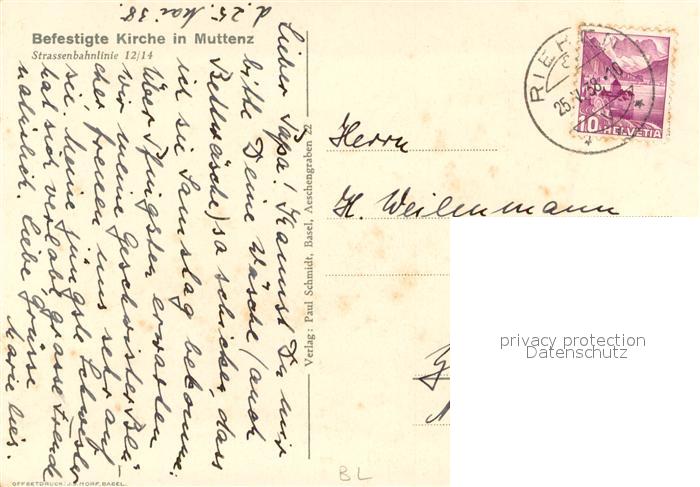 Befestigte Kirche in Muttenz
Strassenbahnlinie 12/14
d. 25. Mai 38.
Lieber Papa! Kannst Du mir
bitte Deine Wäsche (auch
Bettwäsche) so schicken, dass
ich sie Samstag bekomme.
Über Pfingsten erwarten
wir meine Geschwister
freuen uns sehr auf
sie. Meine jüngste Schwester
hat sich verlobt, grosse Freude
natürlich. Liebe Grüsse
Verlag: Paul Schmidt, Basel, Aeschengraben 22
OFFSETDRUCK: J. S. HORF, BASEL.
RIEHEN
25.V.38.-10
10 HELVETIA
Herrn
H. Weilenmann
privacy protection
Datenschutz
BL